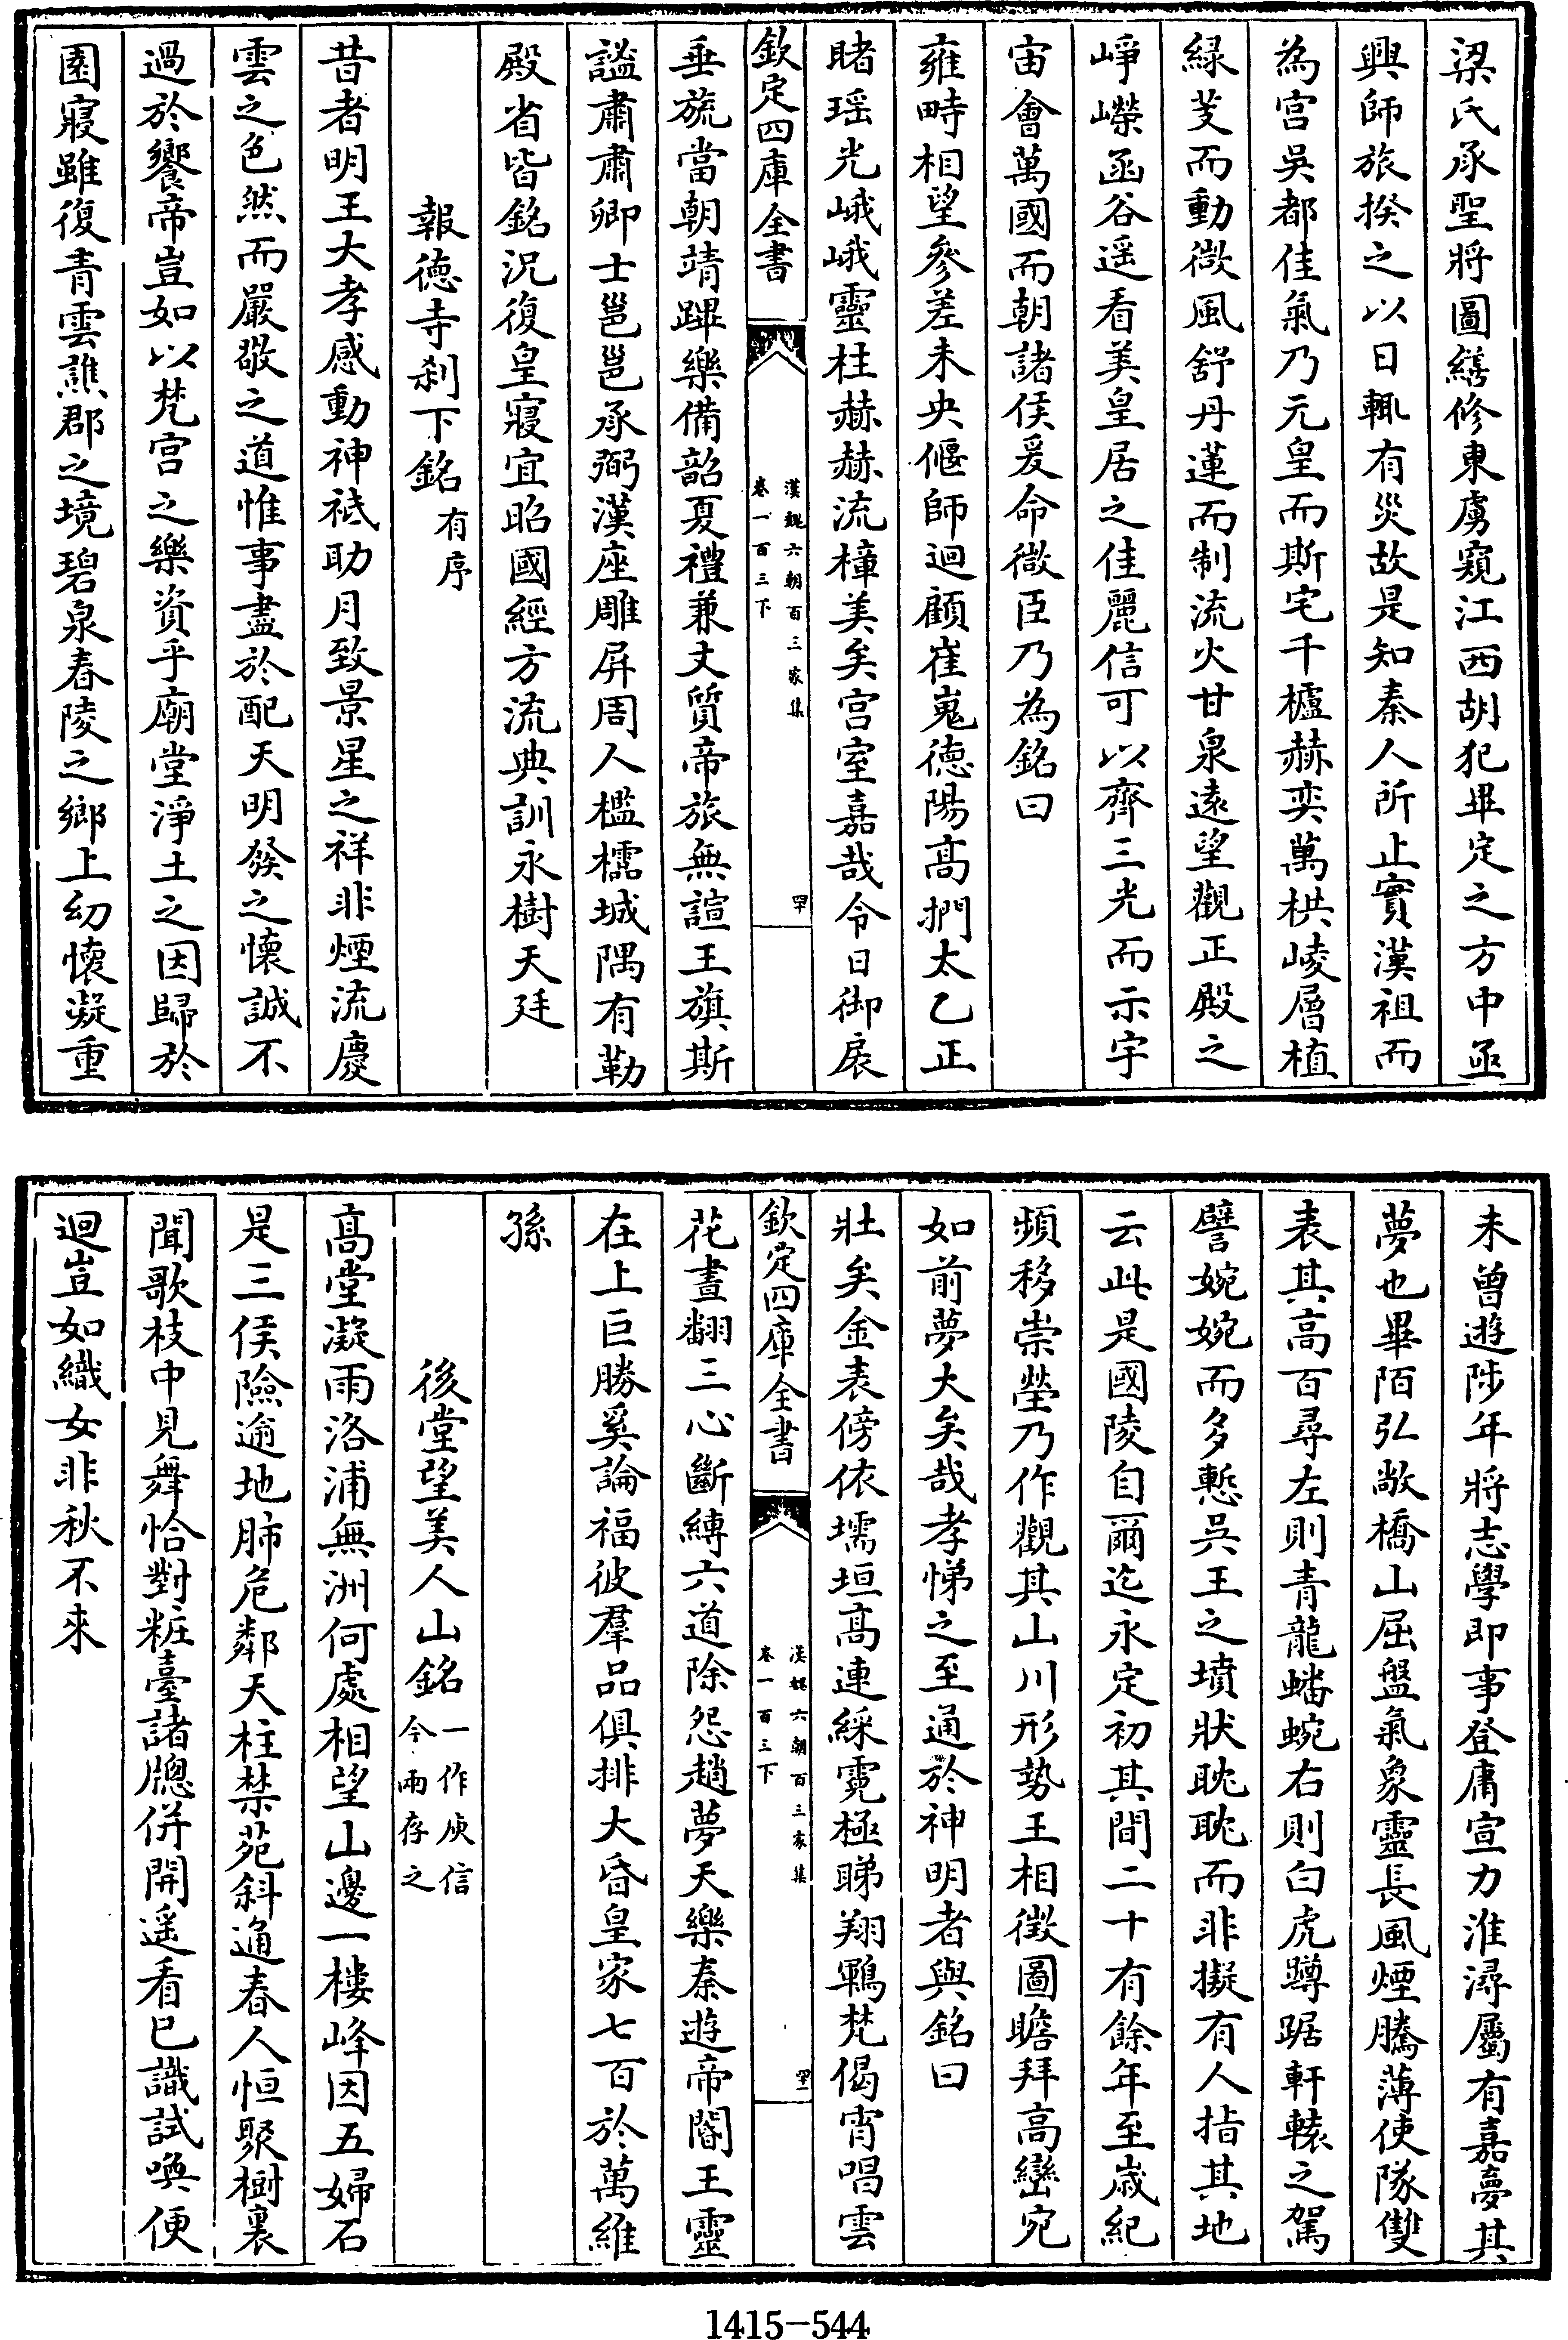 梁氏承聖將圖繕修東虜窺江西胡犯畢定之方中亟
興師旅揆之以日輒有災故是知秦人所止實漢祖而
為宫吳都佳氣乃元皇而斯宅千櫨赫奕萬栱崚層植
緑芰而動微風舒丹蓮而制流火甘泉遠望觀正殿之
崢嶸函谷遥看美皇居之佳麗信可以齊三光而示宇
宙會萬國而朝諸侯爰命微臣乃為銘曰
雍畤相望參差未央偃師迴顧崔嵬德陽高捫太乙正
睹瑶光峨峨靈柱赫赫流樟美矣宫室嘉哉令日御扆
欽定四庫全書
漢魏六朝百三家集
卷一百三下
罕
垂旒當朝靖蹕樂備韶夏禮兼文質帝旅無諠王旗斯
謐肅肅卿士邕邕承弼漢座雕屏周人檻檽城隅有勒
殿省皆銘況復皇寢宜昭國經方流典訓永樹天廷
報德寺刹下銘有序
昔者明王大孝感動神祗助月致景星之祥非煙流慶
雲之色然而嚴敬之道惟事盡於配天明發之懷誠不
過於饗帝豈如以梵宫之樂資乎廟堂淨土之因歸於
園寢雖復青雲譙郡之境碧泉舂陵之鄉上幼懷凝重
未曾遊陟年將志學即事登庸宣力淮潯屬有嘉夢其
夢也畢陌弘敞橋山屈盤氣象靈長風煙騰薄使隊雙
表其高百尋左則青龍蟠蜿右則白虎蹲踞軒轅之駕
譬婉婉而多慙吳王之墳狀耽耽而非擬有人指其地
云此是國陵自爾迄永定初其間二十有餘年至歲紀
頻移崇塋乃作觀其山川形勢王相徴圖瞻拜高巒宛
如前夢大矣哉孝悌之至通於神明者與銘曰
壯矣金表傍依壖垣高連綵霓極睇翔鵾梵偈宵唱雲
欽定四庫全書
漢魏六朝百三家集
卷一百三下
花晝翻三心斷縛六道除怨趙夢天樂秦遊帝閽王靈
在上巨勝奚論福彼羣品俱排大昏皇家七百於萬維
孫
後堂望美人山銘一作庾信
今兩存之
高堂凝雨洛浦無洲何處相望山邊一樓峰因五婦石
是三侯險逾地肺危鄰天柱禁苑斜通春人恒聚樹裏
聞歌枝中見舞恰對粧臺諸牕併開遥看已識試喚便
迴豈如織女非秋不來
1415-544